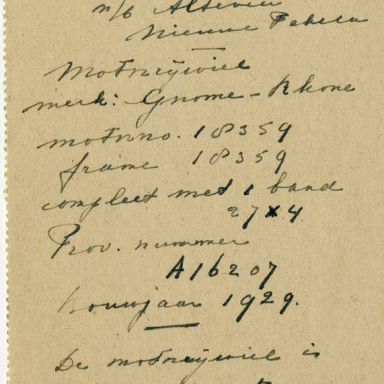 n/b
Nieuwe
Motorrijwiel
merk: Gnome-Rhone
motorno. 18359
frame 18359
compleet met 1 band
27x4
Prov. nummer
A16207
bouwjaar 1929.
De motorrijwiel is